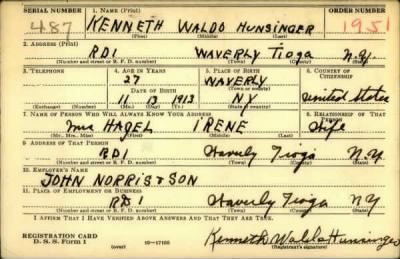 SERIAL NUMBER 1. NAME (Print) ORDER NUMBER
487 KENNETH WALDO HUNSINGER 1951
(First) (Middle) (Last)
2. ADDRESS (Print)
RD1 WAVERLY TIOGA N.Y.
(Number and street or R. F. D. number) (Town) (County) (State)
3. TELEPHONE 4. AGE IN YEARS 5. PLACE OF BIRTH 6. COUNTRY OF CITIZENSHIP
27 WAVERLY
DATE OF BIRTH (Town or county)
11 13 1913 NY United States
(Exchange) (Number) (Mo.) (Day) (Yr.) (State or country)
7. NAME OF PERSON WHO WILL ALWAYS KNOW YOUR ADDRESS 8. RELATIONSHIP OF THAT PERSON
Mrs HAZEL IRENE Wife
(Mr., Mrs., Miss) (First) (Middle) (Last)
9. ADDRESS OF THAT PERSON
RD1 Waverly Tioga N.Y
(Number and street or R. F. D. number) (Town) (County) (State)
10. EMPLOYER'S NAME
JOHN NORRIS & SON
11. PLACE OF EMPLOYMENT OR BUSINESS
RD1 Waverly Tioga NY
(Number and street or R. F. D. number) (Town) (County) (State)
I AFFIRM THAT I HAVE VERIFIED ABOVE ANSWERS AND THAT THEY ARE TRUE.
REGISTRATION CARD Kenneth Waldo Hunsinger
D. S. S. Form 1 (over) 16-17105 (Registrant's signature)